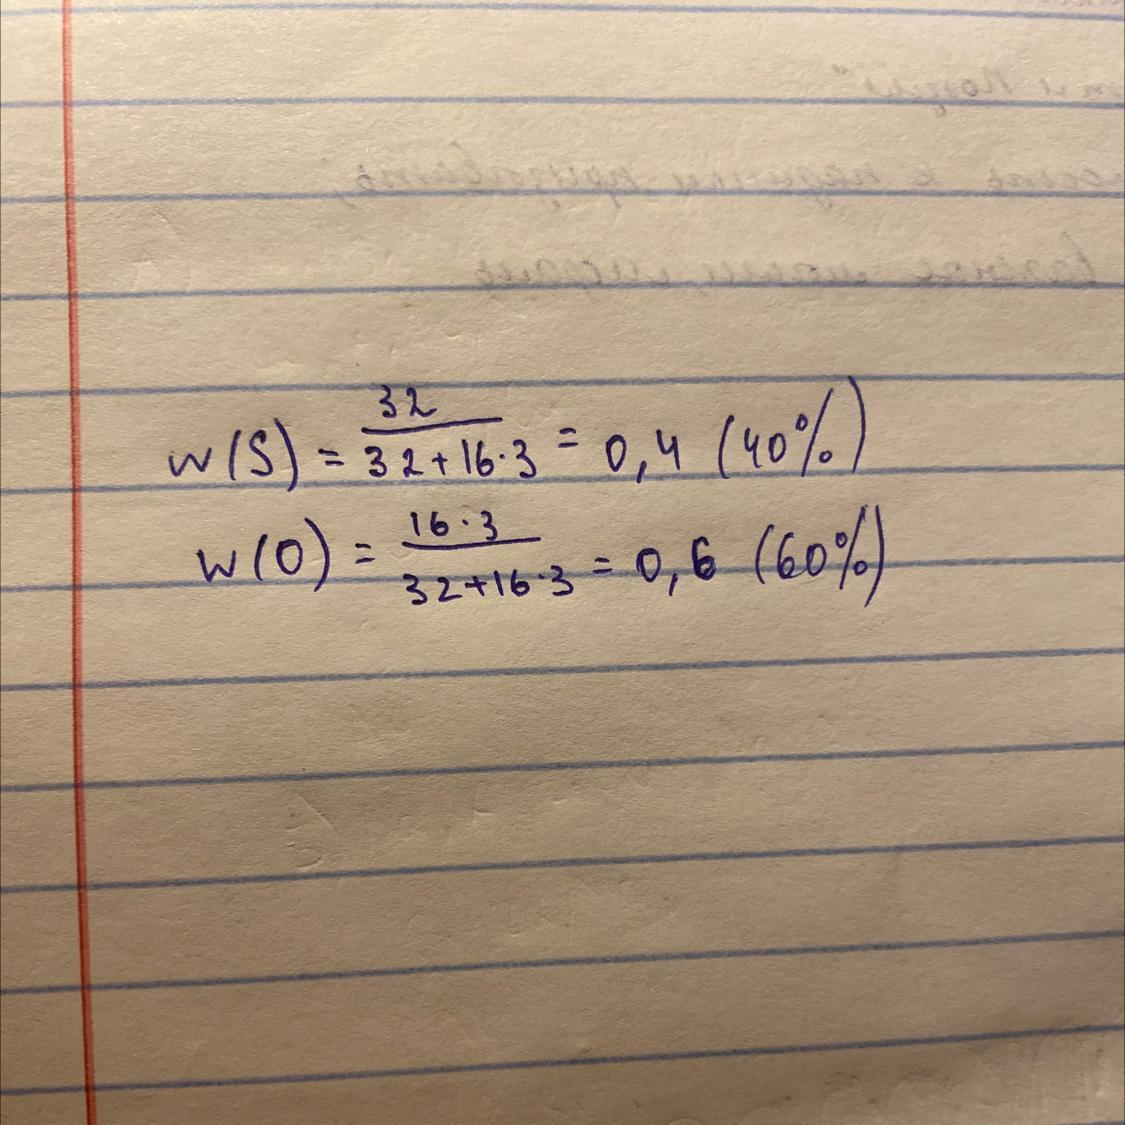 w(S) = 32/(32+16·3) = 0,4 (40%)
w(O) = 16·3/(32+16·3) = 0,6 (60%)